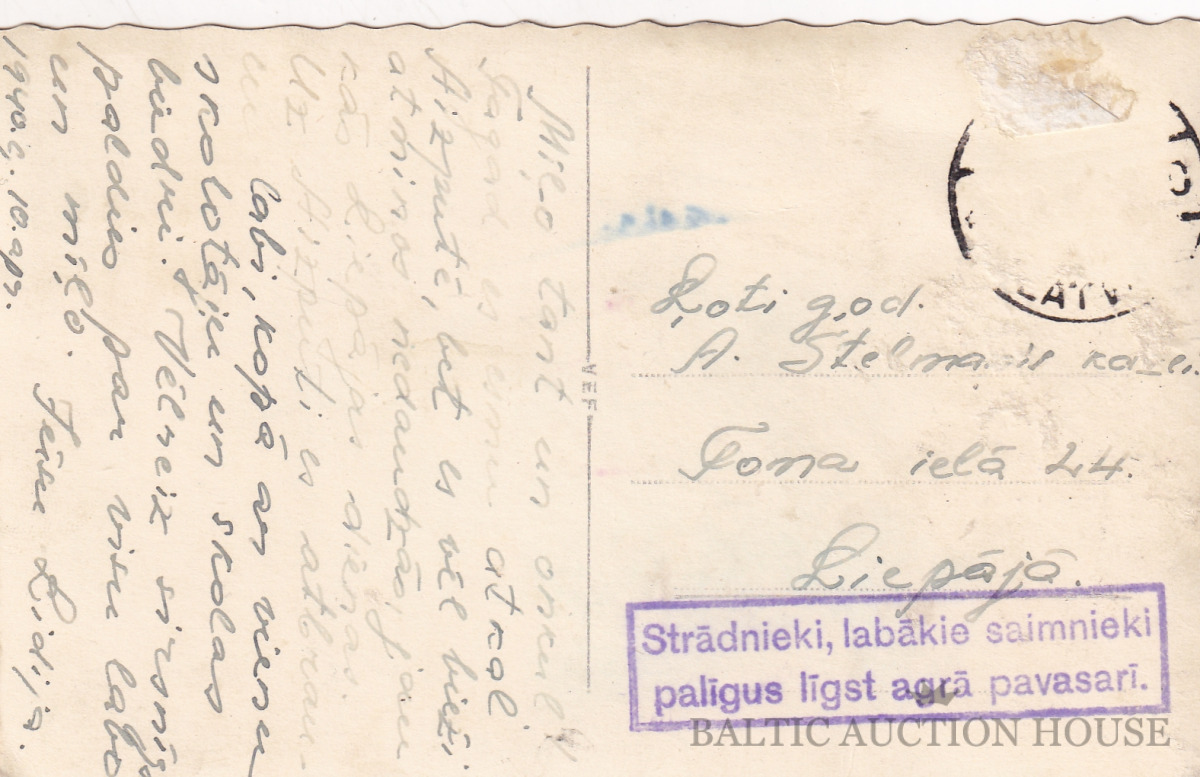 Mīļo tant un onkul!
Tagad es esmu atkal
Aizputē, bet es vēl bieži
atminos nedaudzās, jau
kās Liepājas dienas.
Uz Aizputi es atbrau-
cu labi, kopā ar vienu
skolotāju un skolas
biedri. Vēlreiz sirsnīgs
paldies par visu labo
un mīļo. Jūsu Lidija.
1940.g. 10.apr.
AEF
LATV
Ļoti god.
A. Stelma is
Toma ielā 24.
Liepājā.
Strādnieki, labākie saimnieki
palīgus līgst agrā pavasarī.
BALTIC AUCTION HOUSE